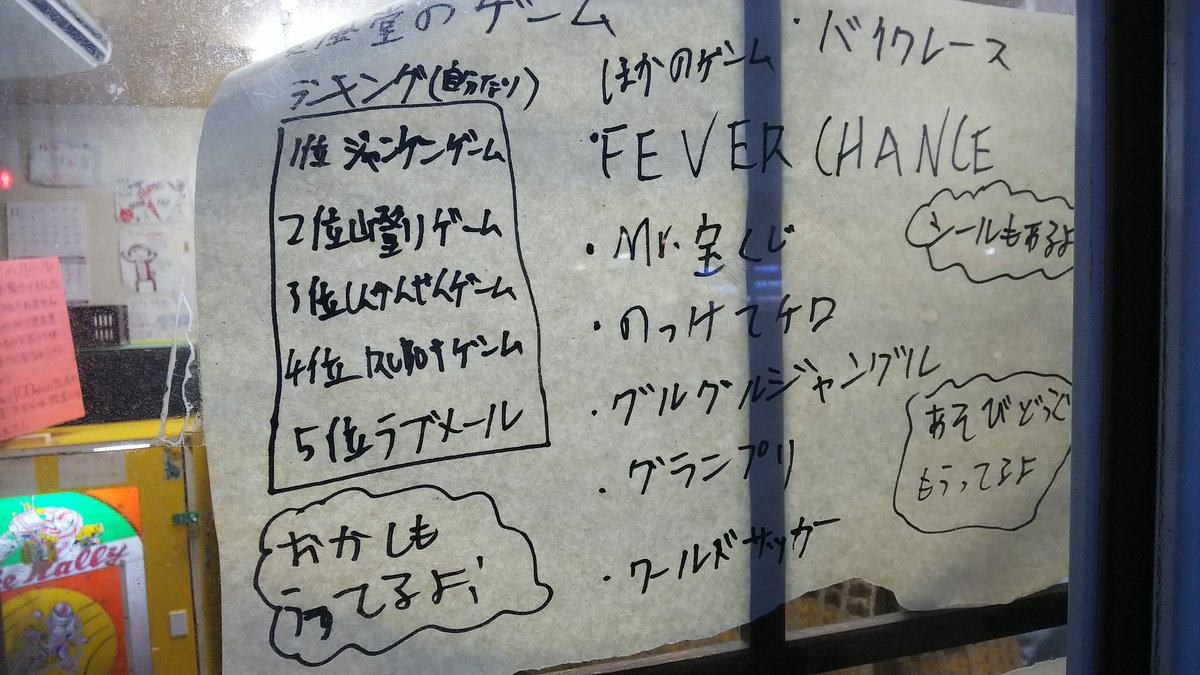 堂のゲーム
ランキング(自分なり)
1位 ジャンケンゲーム
2位山登りゲーム
3位しんかんせんゲーム
4位 ゲーム
5位ラブメール
おかしも
うってるよ!
ほかのゲーム
・FEVER CHANCE
・Mr.宝くじ
・のっけてチロ
・グルグルジャングル
・グランプリ
・ワールズサッカー
・バイクレース
シールもあるよ
あそびどうぐ
もうってるよ
Rally